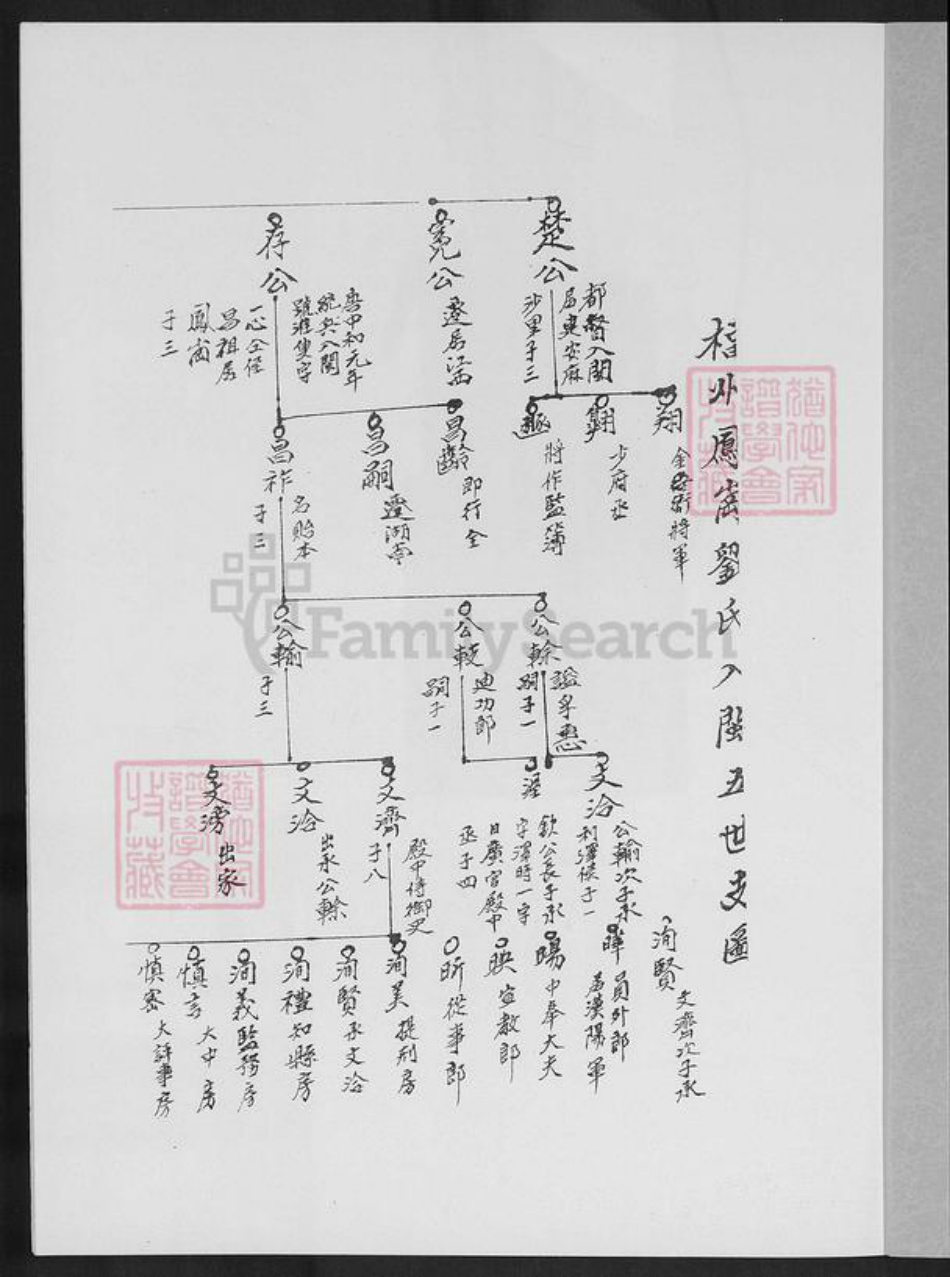 楷外鳳崗劉氏入閩五世支圖
楚公
都督入閩
居建安麻
沙里子三
寬公
遷居江西
存公
唐中和元年
統兵入閩
號淮隻字
一心仝侄
昌祖居
鳳崗
子三
翔
金吾衛將軍
翺
少府丞
豳
將作監簿
昌齡
即行全
昌嗣
遷湖亭
昌祚
名貽本
子三
公餘
謚孚惠
嗣子一
公較
迪功郎
嗣子一
公輸
子三
文洽
公輸次子承
利澤侯子一
欽公長子承
字濵時一字
日廣官殿中
丞子四
文濟
殿中侍御史
子八
文洽
出承公餘
文滂
出家
洵賢
文濟次子承
暐
員外郎
居漢陽軍
暘
中奉大夫
映
宣教郎
昕
從事郎
洵美
提刑房
洵賢
承文洽
洵禮
知縣房
洵義
監務房
慎言
大中房
慎密
大評事房
猶他家
譜學會
收藏
猶他家
譜學會
收藏
FamilySearch